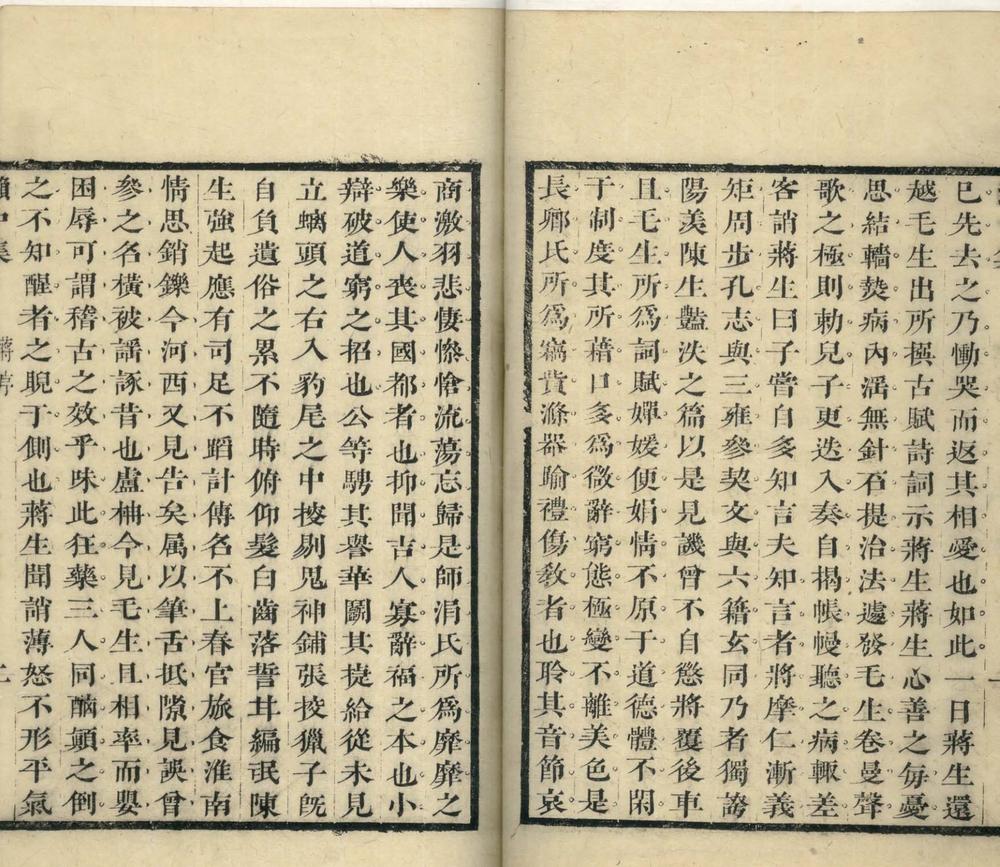 已先去之乃慟哭而返其相愛也如此一日蔣生還
越毛生出所撰古賦詩詞示蔣生蔣生心善之每憂
思結轖爇病內㴠無針石提治法遽發毛生卷曼聲
歌之極則勅兒子更迭入奏自揭帳幔聽之病輒差
客誚蔣生曰子嘗自多知言夫知言者將摩仁漸義
矩周步孔志與三雍參契文與六籍玄同乃者獨謗
陽羨陳生豔泆之篇以是見譏曾不自懲將覆後車
且毛生所爲詞賦嬋媛便娟情不原于道德體不閑
于制度其所藉口多爲微辭窮態極變不離美色是
長卿氏所爲竊貲滌器踰禮傷敎者也聆其音節哀
商激羽悲悽慘愴流蕩忘歸是師涓氏所爲靡靡之
樂使人喪其國都者也抑聞吉人寡辭福之本也小
辯破道窮之招也公等騁其譽華圖其㨗給從未見
立螭頭之右入豹尾之中掞剔鬼神鋪張挍獵子旣
自負遺俗之累不隨時俯仰髮白齒落誓其編氓陳
生強起應有司足不蹈計傳名不上春官旅食淮南
情思銷鑠今河西又見告矣属以筆舌抵隙見誤曾
參之名橫被謠諑昔也盧柟今見毛生且相率而嬰
困辱可謂稽古之效乎昧此狂藥三人同酗顚之倒
之不知醒者之睨于側也蔣生聞誚薄怒不形平氣